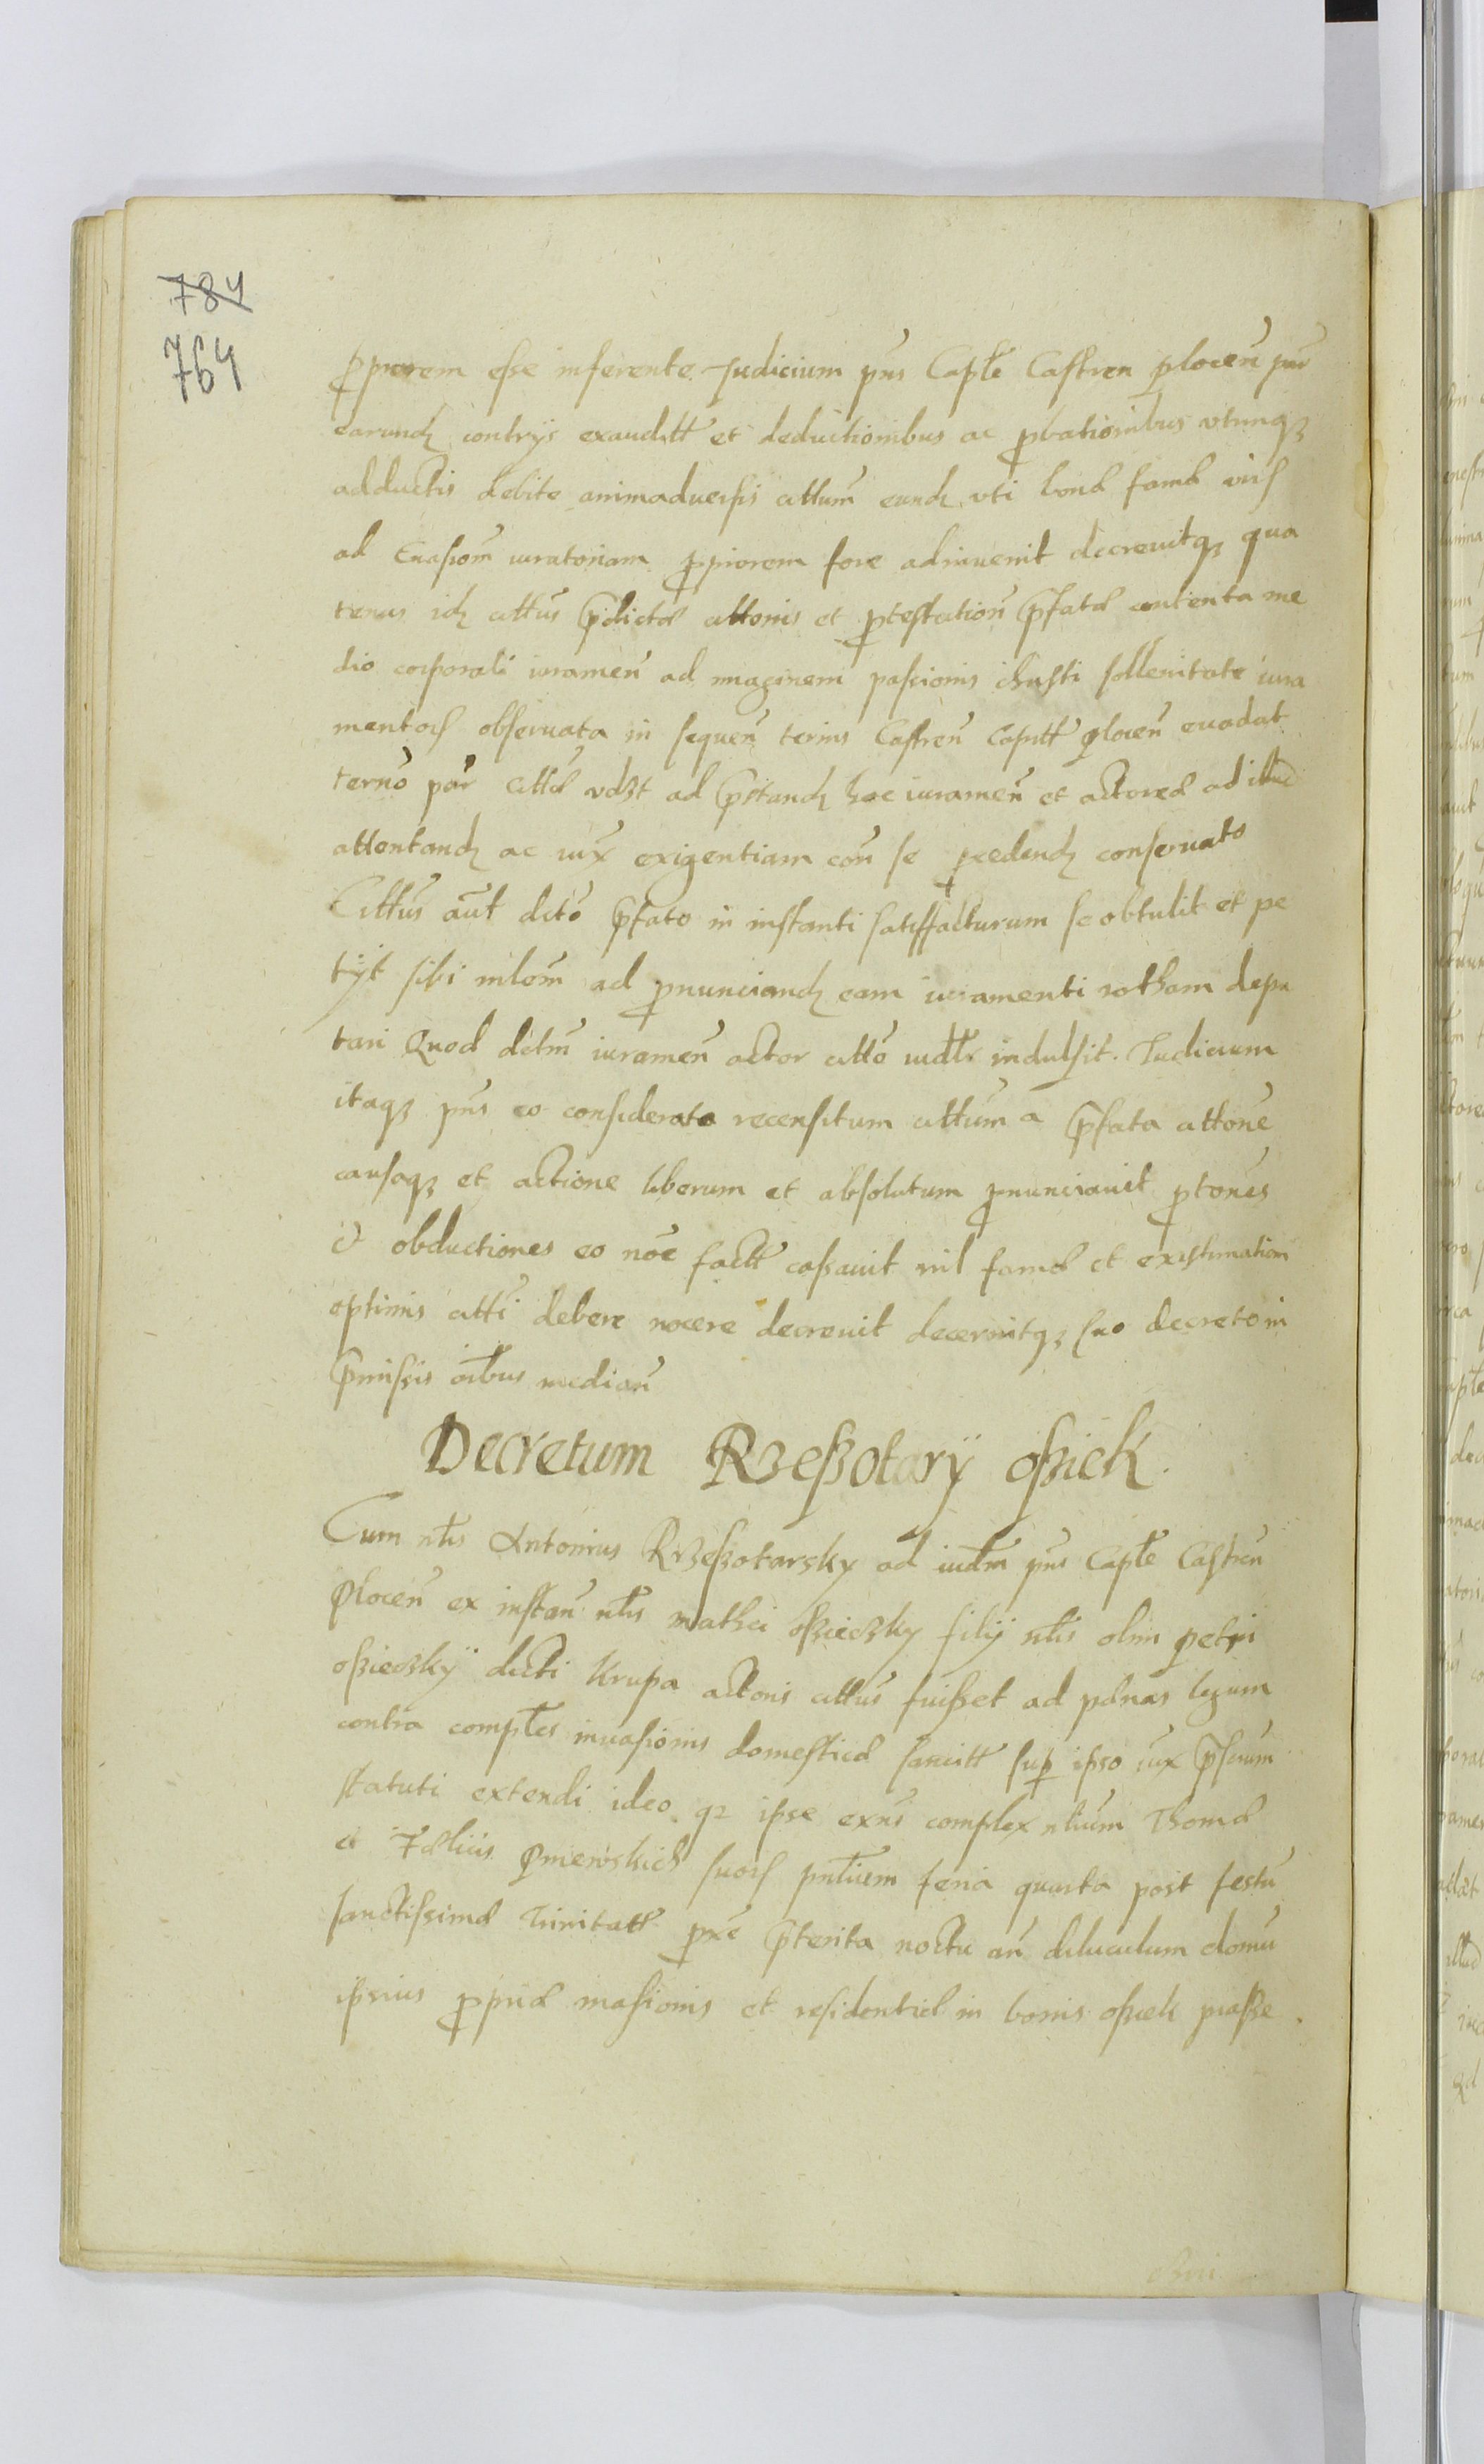 784
764
ꝓpiorem esse inferente Judicium pñs Caplĕ Castren plocen̄ par
earundꝫ contrÿs exauditt̄ et deductionibus ac ꝓbationibus utrinqꝫ
adductis debite animaduersis cittum̄ eundꝫ vti bonæ famæ viꝝ
ad Euasiom̄ iuratoriam ꝓpiorem fore adinuenit decreuitqꝫ qua
tenus idꝫ cittus p̄dictæ cittonis et ꝓtestation̄ p̄fatæ contenta me
dio corporali iuramen̄ ad imaginem passionis christi sollenitate iura
mentoꝝ obseruata in sequen̄ terminis Castren̄ Capitt̄ plocen̄ euadat
ternō par̄ cittæ vdꝫt ad p̄standꝫ hoc iuramen̄ et actoreæ ad illud
attentandꝫ ac iux̄ exigentiam con̄ se ꝓcedendꝫ conseruato
Cittūs aūt dctō p̄fato in instanti satisfacturum se obtulit et pe
tÿt sibi ministeriālem ad ꝓnunciandꝫ eam iuramenti rotham depu
tari Quod dctm̄ iuramen̄ actor cittō iudlr̄ indulsit. Judicium
itaqꝫ pñs eo considerato recensitum cittūm a p̄fata cittonē
causaqꝫ et actione liberum et absolutum ꝓnunciauit ꝓtonēs
& obductiones eo noīe factt̄ cassauit nil famæ et existimationi
optimis cittī debere nocere decreuit decernitqꝫ suo decreto in
p̄missis oībus median̄
Decretum Rzeszotarÿ osziek.
Cum nlīs Antonius Rzeszotarsky ad iudm̄ pñs Caplĕ Castren̄
plocen̄ ex instan̄ nlīs mathei osziedzky filÿ nlīs olim petri
osziedzkÿ dicti Krupa actoris cittus fuisset ad pœnas legum
contra complēs inuasionis domesticæ sancitt̄ suꝑ ipso iux p̄scrium
statuti extendi ideo qꝫ ipse exn̄s complex nlīum Thomæ
et Fælicis pniewskich suoꝝ pnlīum feria quarta post festū
sanctissimæ Trinitatt̄ ꝓxē p̄terita noctu an̄ diluculum domū
ipsius ꝓpriæ mansionis et residentiæ in bonis osziek prasse.